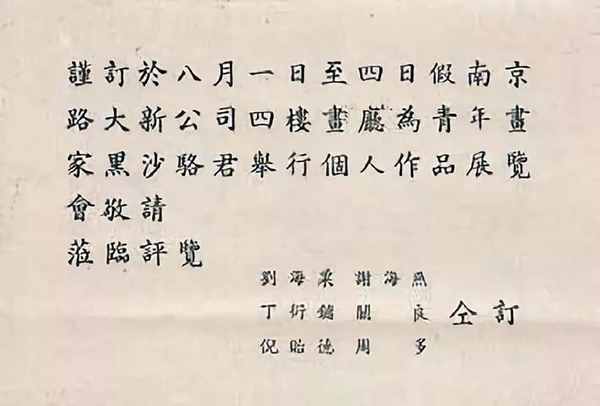 謹訂於八月一日至四日假南京
路大新公司四樓畫廳為青年畫
家黑沙駱君舉行個人作品展覽
會敬請
蒞臨評覽
劉海粟 謝海燕
丁衍鏞 關良 仝訂
倪貽德 周多